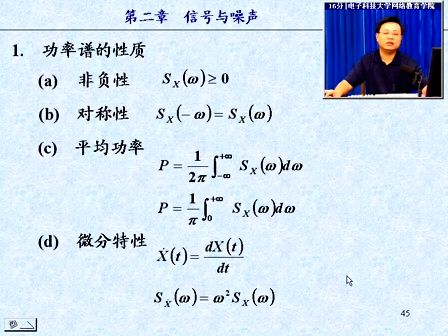 16分|电子科技大学网络教育学院
第二章 信号与噪声
1. 功率谱的性质
(a) 非负性 S_X(ω) ≥ 0
(b) 对称性 S_X(−ω) = S_X(ω)
(c) 平均功率
P = 1/2π ∫_{−∞}^{+∞} S_X(ω)dω
P = 1/π ∫_0^{+∞} S_X(ω)dω
(d) 微分特性 Ẋ(t) = dX(t)/dt
S_Ẋ(ω) = ω² S_X(ω)
45